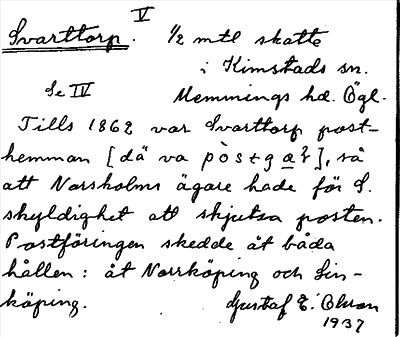 V
Svarttorp. 1/2 mtl skatte
i Kimstads sn.
Se IV Memmings hd. Ögl.
Tills 1862 var Svarttorp post-
hemman [dä va pòstgaɽ], så
att Norsholms ägare hade för S.
skyldighet att skjutsa posten.
Postföringen skedde åt båda
hållen: åt Norrköping och Lin-
köping. Gustaf E. Olson
1937